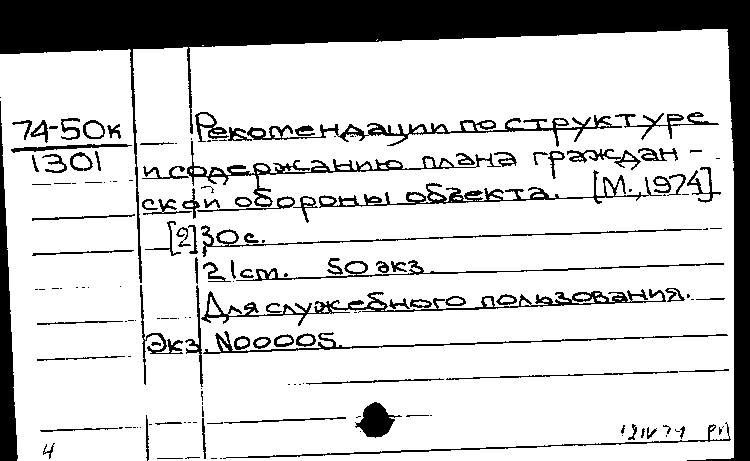 74-50к
1301
Рекомендации по структуре
и содержанию плана граждан-
ской обороны объекта. [М., 1974]
[2], 30 с.
21 см. 50 экз.
Для служебного пользования.
Экз. N00005.
4